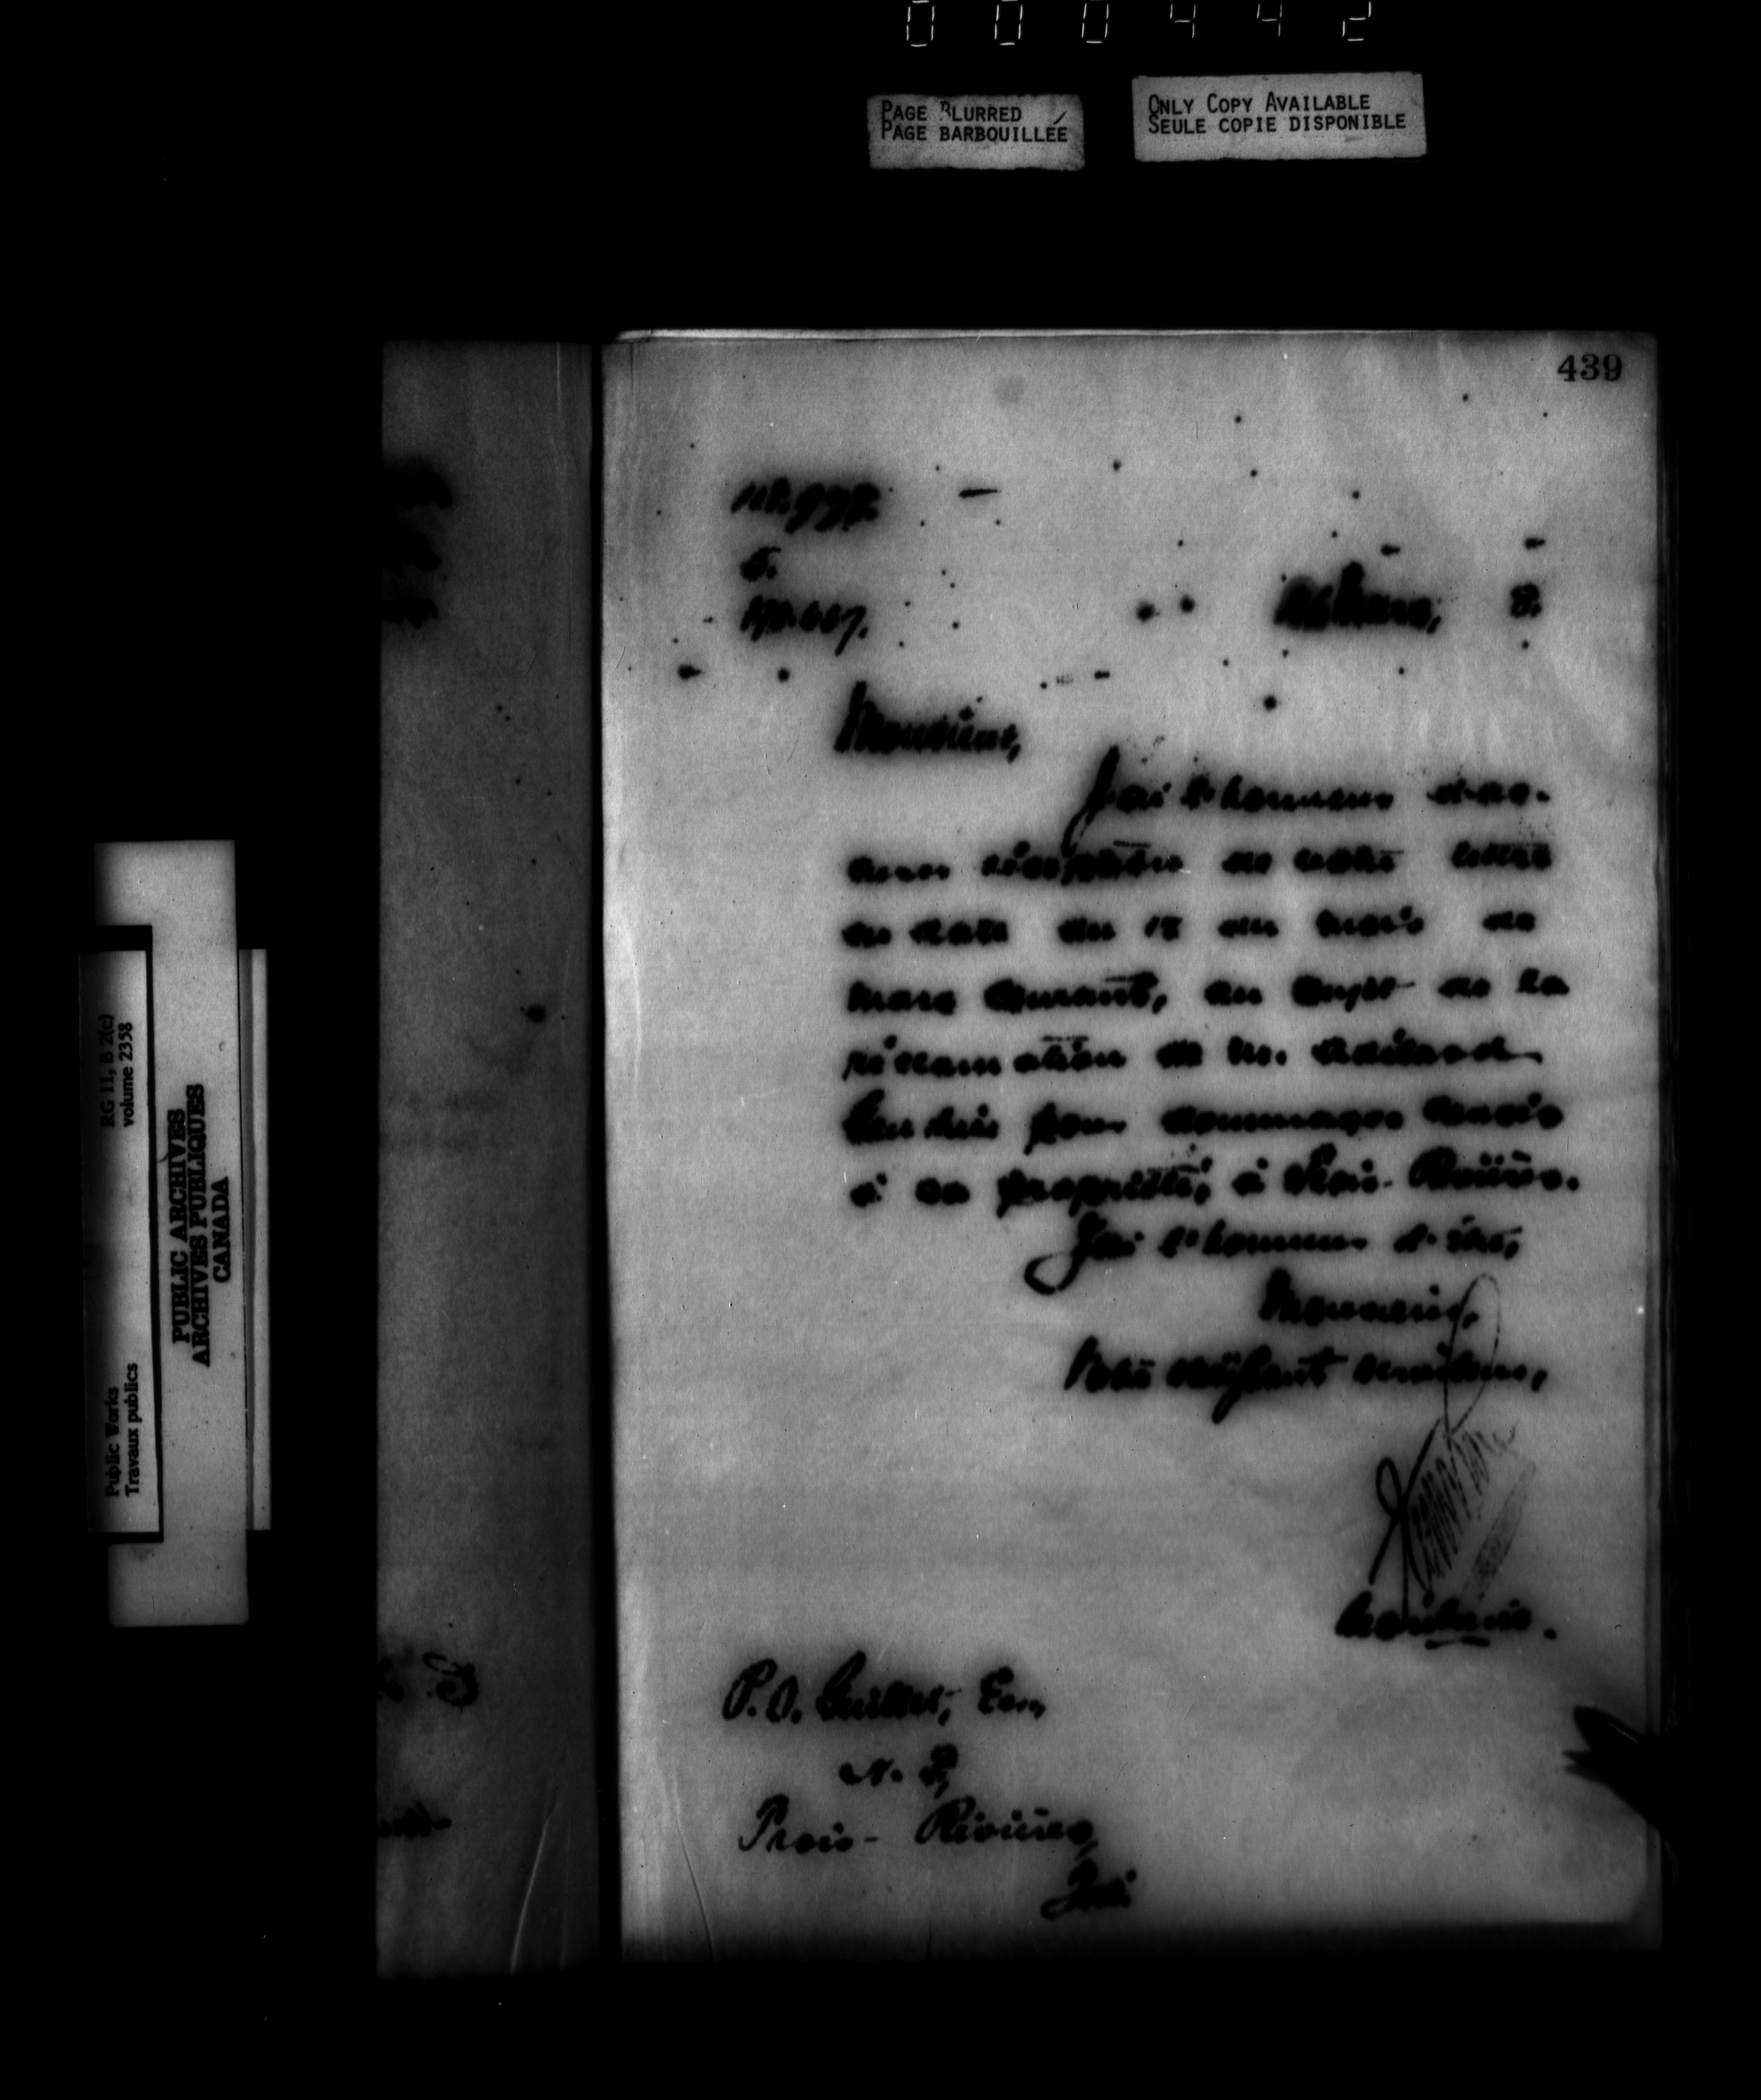 000442
PAGE BLURRED
PAGE BARBOUILLÉE
ONLY COPY AVAILABLE
SEULE COPIE DISPONIBLE
439
5.
Monsieur,
J'ai l'honneur d'ac-
cuser réception de votre lettre
en date du 18 du mois de
mars courant, au sujet de la
réclamation de M.
pour dommages causés
à sa propriété, à Trois-Rivières.
J'ai l'honneur d'être,
Monsieur,
Votre obéissant serviteur,
Secrétaire.
P.O. Guillet, Esq.,
N.P.,
Trois-Rivières,
Qué.
RG 11, B 2(c)
volume 2358
PUBLIC ARCHIVES
ARCHIVES PUBLIQUES
CANADA
Public Works
Travaux publics